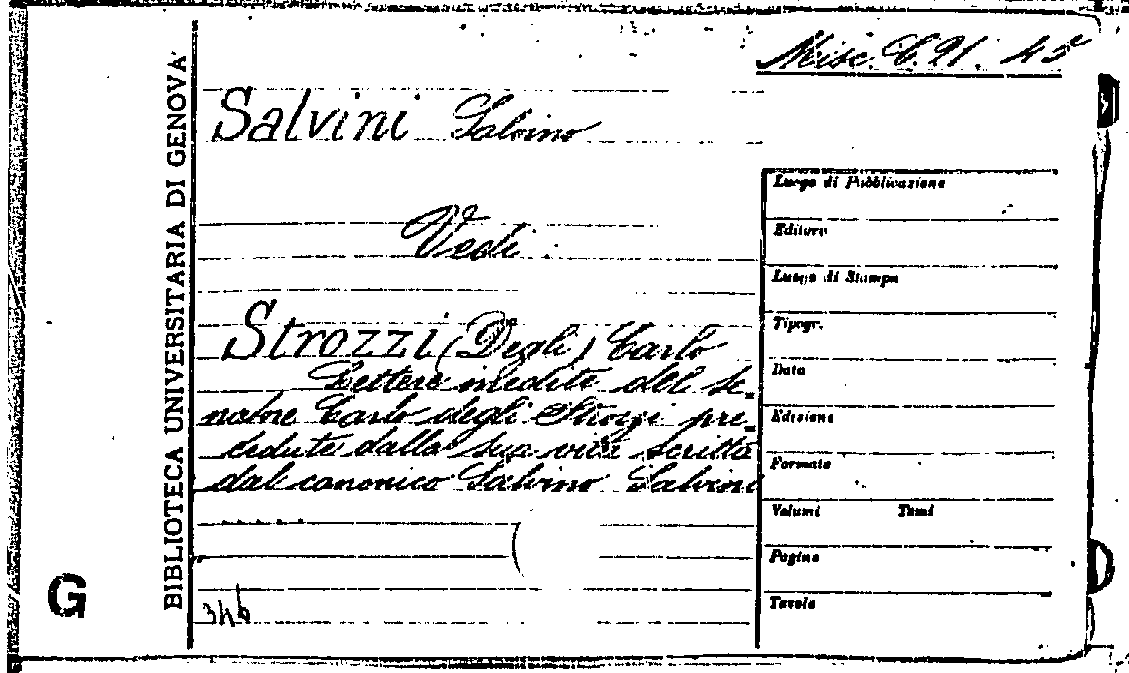 Misc. C. 91. 45
Salvini Salvino
Vedi:
Strozzi (Degli) Carlo
Lettere inedite del se=
natore Carlo degli Strozzi pre=
cedute dalla sua vita scritta
dal canonico Salvino Salvini
346
BIBLIOTECA UNIVERSITARIA DI GENOVA
G
Luogo di Pubblicazione
Editore
Luogo di Stampa
Tipogr.
Data
Edizione
Formato
Volumi Tomi
Pagine
Tavole